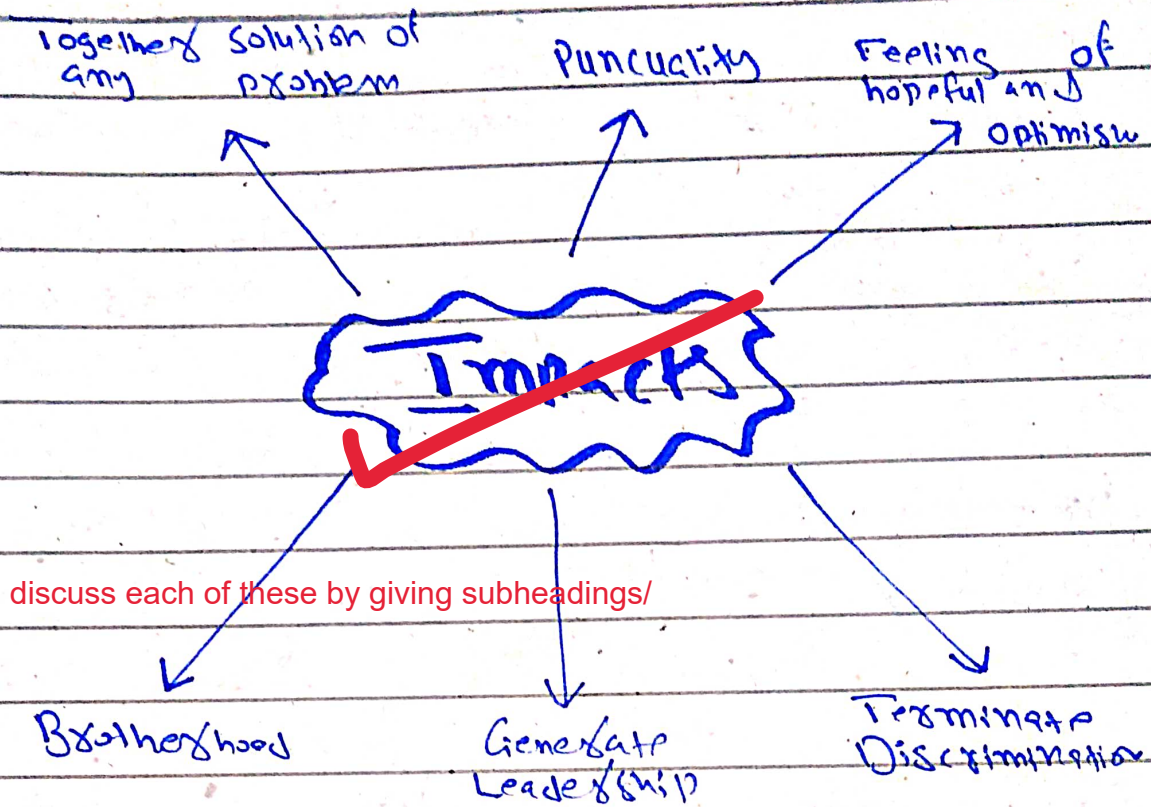 Together solution of
any problem
Puncuality
Feeling of
hopeful and
optimism
Impacts
discuss each of these by giving subheadings/
Brotherhood
Generate
Leadership
Terminate
Discrimination